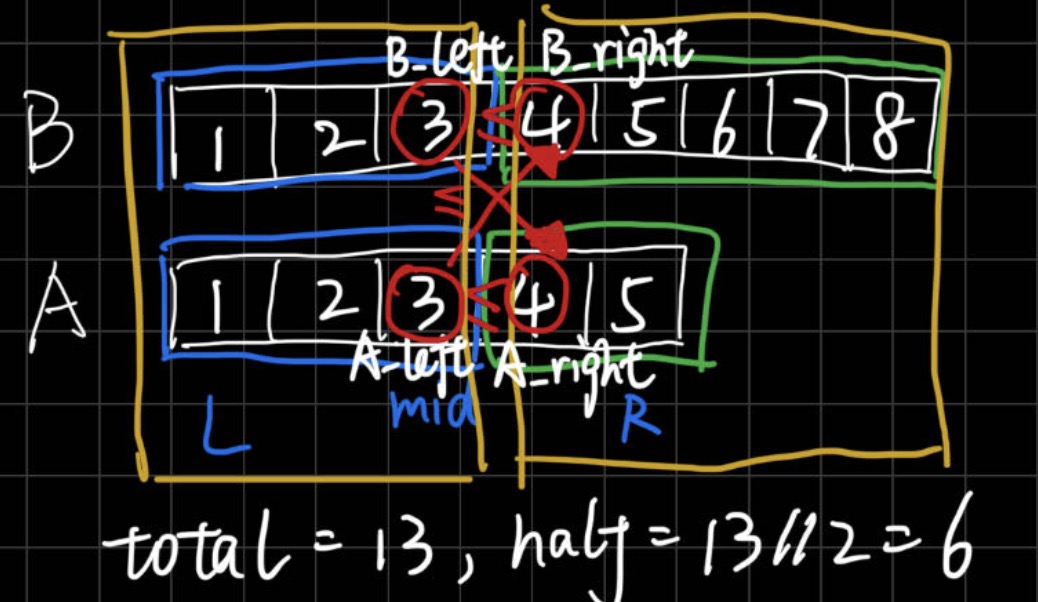 B_left B_right
B 1 2 3 ≤ 4 5 6 7 8
≤
A 1 2 3 ≤ 4 5
A_left A_right
L mid R
total = 13, half = 13//2 = 6